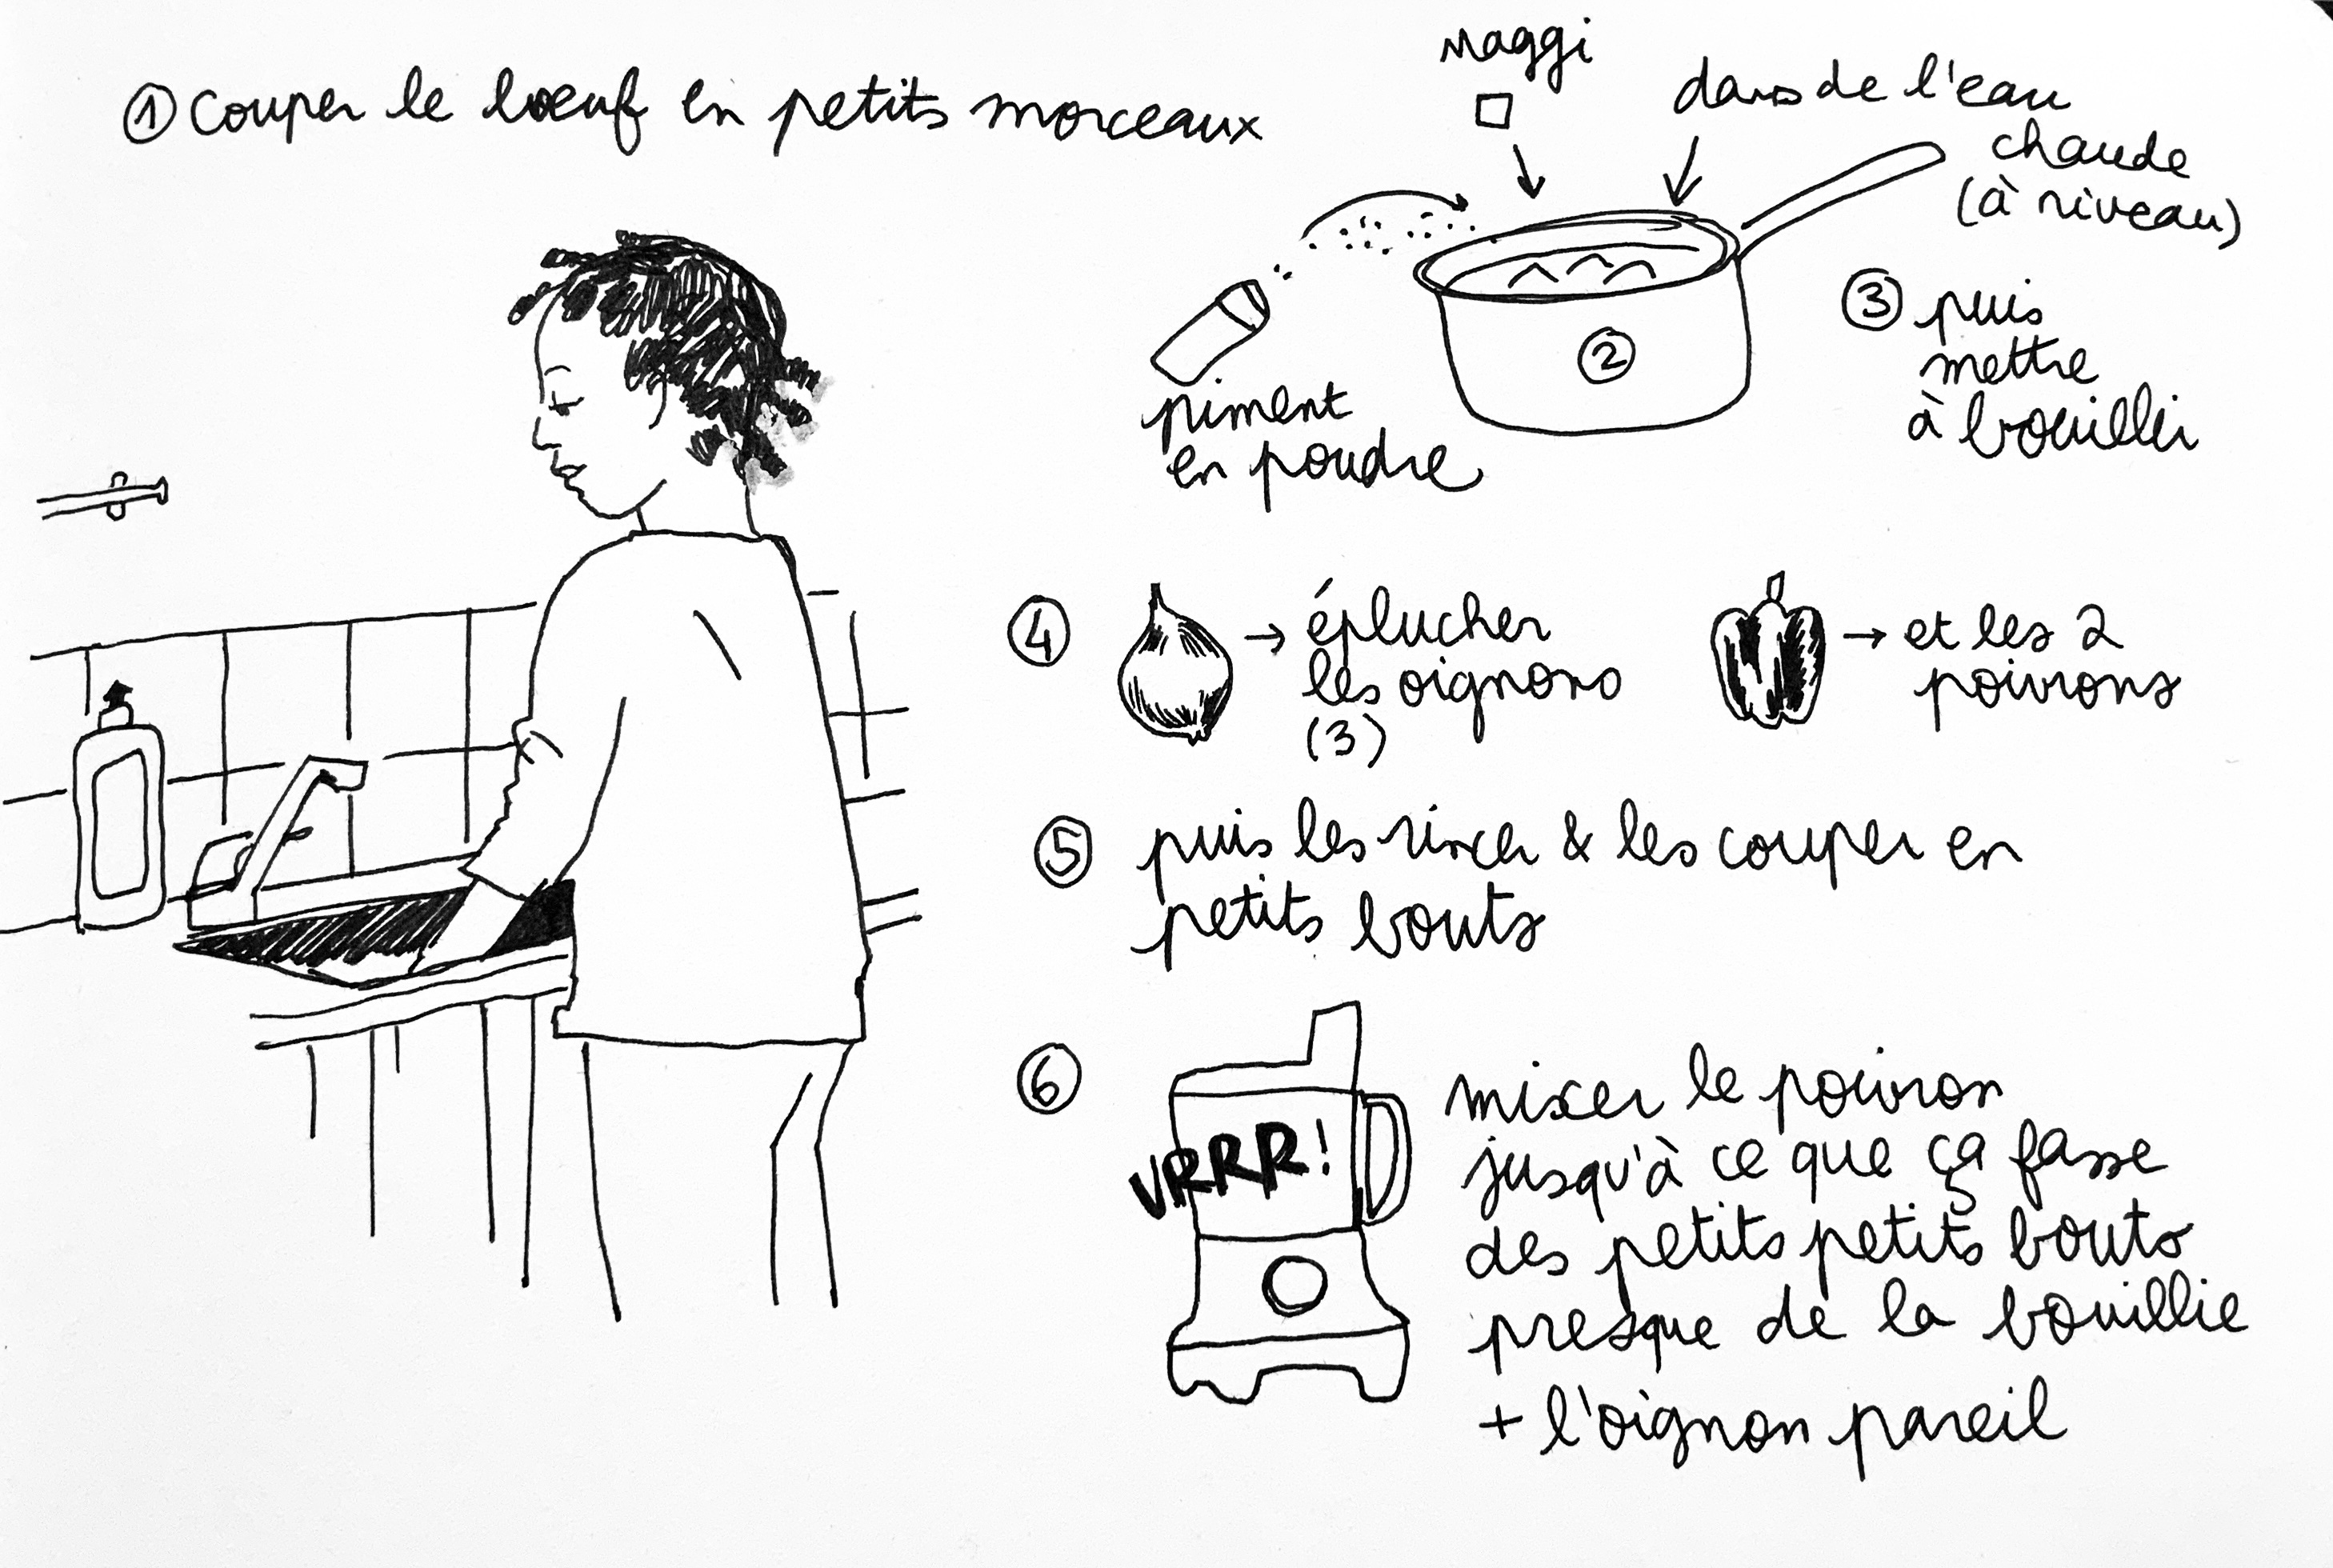 ① couper le bœuf en petits morceaux
Maggi
dans de l'eau
chaude
(à niveau)
piment
en poudre
②
③ puis
mettre
à bouillir
④ → éplucher
les oignons
(3)
→ et les 2
poivrons
⑤ puis les rincer & les couper en
petits bouts
⑥
VRRR!
mixer le poivron
jusqu'à ce que ça fasse
des petits petits bouts
presque de la bouillie
+ l'oignon pareil